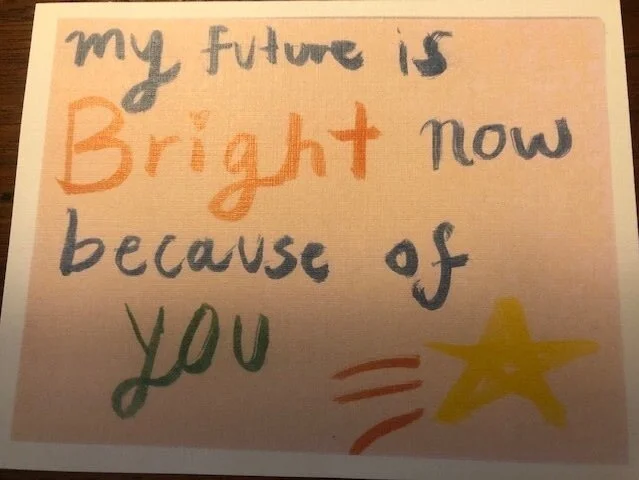 my future is
Bright now
because of
you